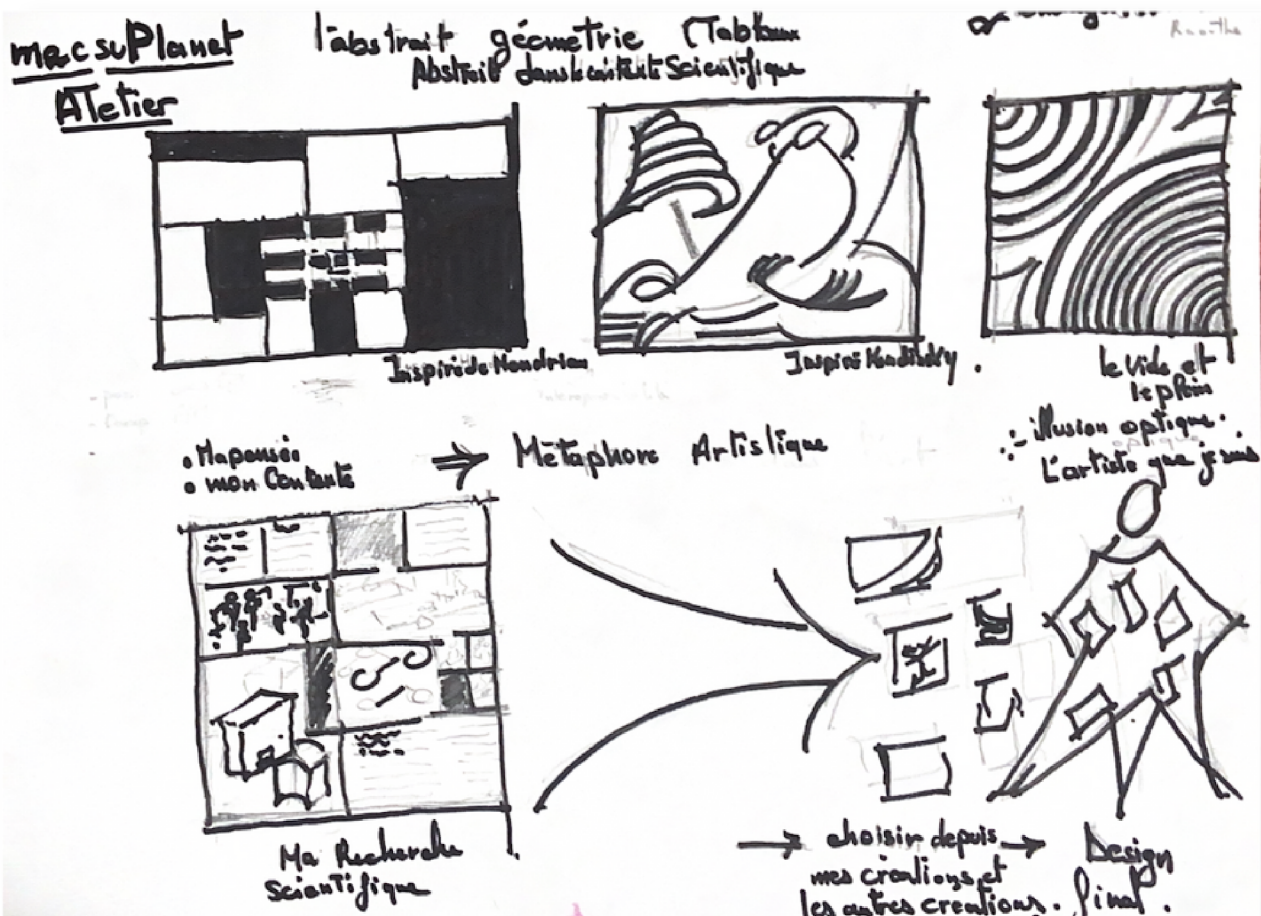 mac su Planet
Atelier
l'abstrait géometrie (Tableaux
Abstrait dans le contexte Scientifique
Inspiré de Mondrian
Inspiré Kandinsky.
le vide et
le plein
illusion optique.
optique
L'artiste que je suis
• Ma pensée
• mon Contexte
⇒ Métaphore Artistique
Ma Recherche
Scientifique
→ choisir depuis
mes créations et
les autres creations.
→ Design
final.